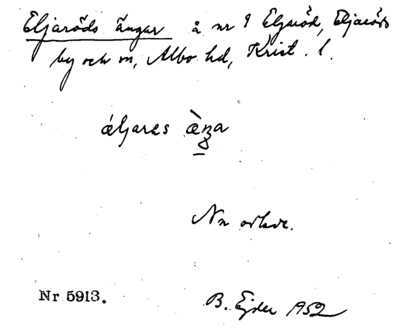 Eljaröds ängar å nr 9 Eljaröd, Eljaröds
by och sn, Albo hd, Krist. l.
áljares æ̀ŋa
Nu odlade.
Nr 5913. B. Ejder 1952